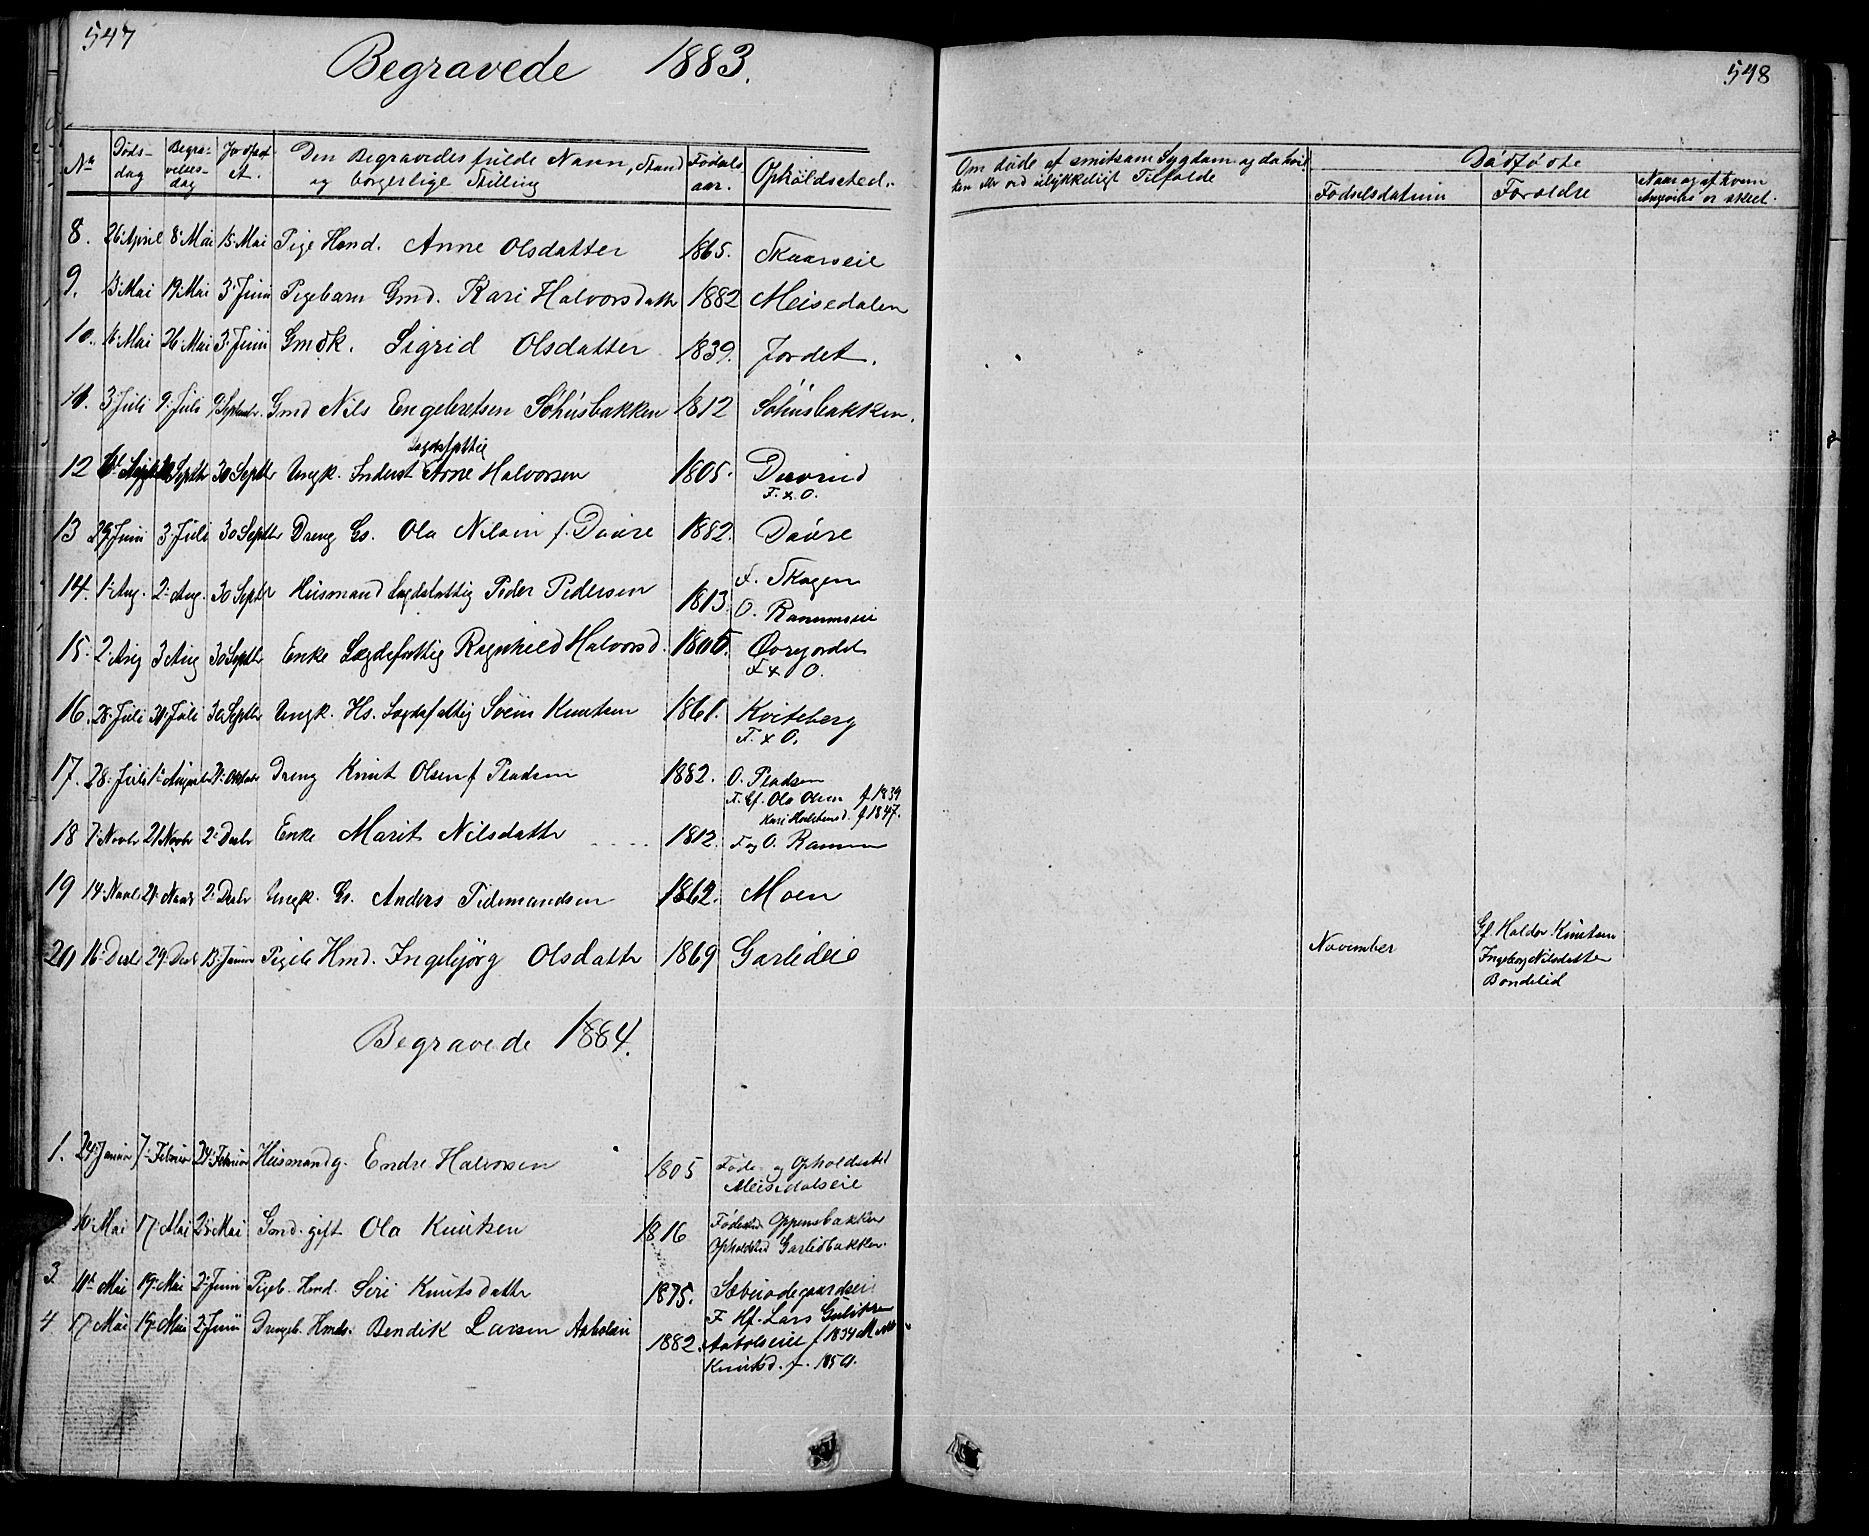 547
Begravede 1883.
No Døds-dag Begra-velses-dag Jordfæst-et. Den Begravedes fulde Navn, Stand og borgerlige Stilling Fødsels aar. Opholdssted.
8. 26 April 8 Mai 15 Mai Pige Hmd. Anne Olsdatter 1865. Skaarseie
9. 13 Mai 19 Mai 3 Juni Pigebarn Gmd. Kari Halvorsdattr 1882 Meisedalen
10. 16 Mai 26 Mai 3 Juni Gmdk. Sigrid Olsdatter 1839. Jordet.
11. 3 Juli 9 Juli 9 Septembr. Gmd Nils Engebretsen Søhusbakken 1812 Søhusbakken.
Lægdsfattig
12 Septbr 30 Septbr Ungk. Inderst Arne Halvorsen 1805.
F. & O.
13 29 Juni 3 Juli 30 Septbr Dreng Gs. Ola Nilsen f. Daare 1882. Daare
14. 1 Aug. 2 Aug. 30 Septbr Husmand Lægdsfattig Peder Pedersen 1813. F. Skogen
O. Ranumseie
15. 2 Aug 3 Aug 30 Septbr Enke Lægdsfattig Ragnhild Halvorsd. 1805. Øvrejordet
F & O.
16. 28 Juli 30 Septbr Ungk. Hs. Lægdsfattig Svein Knutsen 1861. Kviteberg
F. & O.
17. 28 Juli 1 August 21 Oktobr Dreng Knut Olsen f Pladsen 1882. O. Pladsen
F. Gf. Ola Olsen f 1839
Kari f 1847.
18 7 Novbr 21 Novbr 2 Decbr Enke Marit Nilsdattr 1812. F og O. Ranum
19 14 Novbr 21 Novbr 2 Decbr Ungk. Gs. Anders Tidemandsen 1862. Moen
20 16 Decbr 29 Decbr 13 Januar Pigeb Hmd. Ingebjørg Olsdattr 1869 Garlideie
Begravede 1884.
1. 24 Januar 7 Februar 24 Februar Husmand g. Endre Halvorsen 1805 Føde- og Opholdssted
Meisedalseie
10 Mai 17 Mai 25 Mai Gmd. gift Ola Knutsen 1816 Fødested Oppensbakken
Opholdsted Garlidbakken.
3 11 Mai 19 Mai 2 Juni Pigeb. Hmd. Siri Knutsdattr 1875. Sæbuødegaardseie
4 17 Mai 19 Mai 2 Juni Drengb. Hmds. Bendik Larsen Aabolseie 1882. F Hf. Lars Gulikse
Aabolseie f 1834 M
Knutsd. f.
548
Om døde af smitsom Sygdom og da hvilken eller ved ulykkeligt Tilfælde
Dødfødte
Fødselsdatum Forældre Naar og af hvem Angivelse er skeet.
November Gf. Haldor Knutsen
Ingeborg Nilsdatter
Bondelid